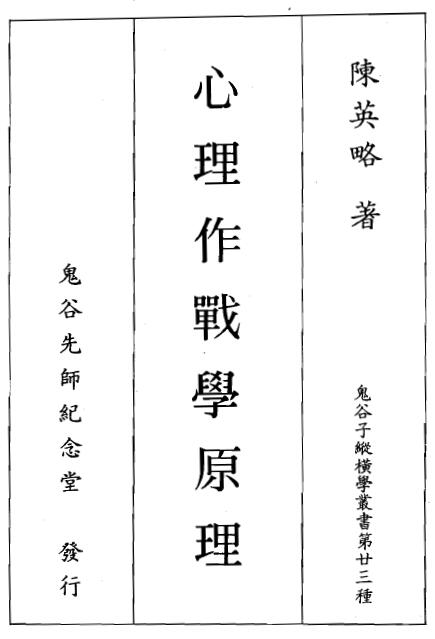 陳英略 著
鬼谷子縱橫學叢書第廿三種
心理作戰學原理
鬼谷先師紀念堂 發行